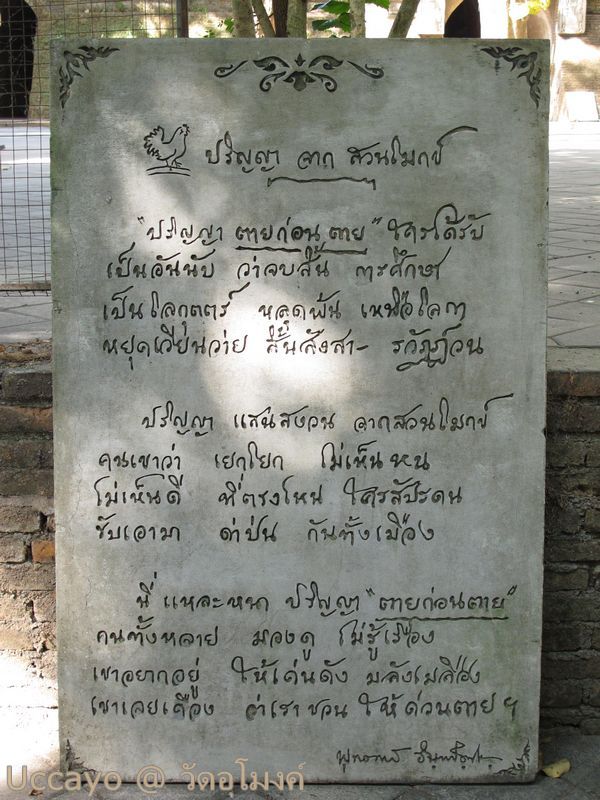 ปริญญา จาก สวนโมกข์
"ปริญญา ตายก่อนตาย" ใครได้รับ
เป็นอันนับ ว่าจบสิ้น การศึกษา
เป็นโลกุตตร์ หลุดพ้น เหนือโลกา
หยุดเวียนว่าย สิ้นสังสา- รวัฏฏ์วน
ปริญญา แสนสงวน จากสวนโมกข์
คนเขาว่า เยกโยก ไม่เห็นหน
ไม่เห็นดี ที่ตรงไหน ใครสัปรดน
รับเอามา ด่าป่น กันทั้งเมือง
นี่ แหละหนา ปริญญา "ตายก่อนตาย"
คนทั้งหลาย มองดู ไม่รู้เรื่อง
เขาอยากอยู่ ให้เด่นดัง มลังเมลือง
เขาเลยเคือง ว่าเราชวน ให้ด่วนตายฯ
พุทธทาส อินทปัญโญ
Uccayo @ วัดอุโมงค์